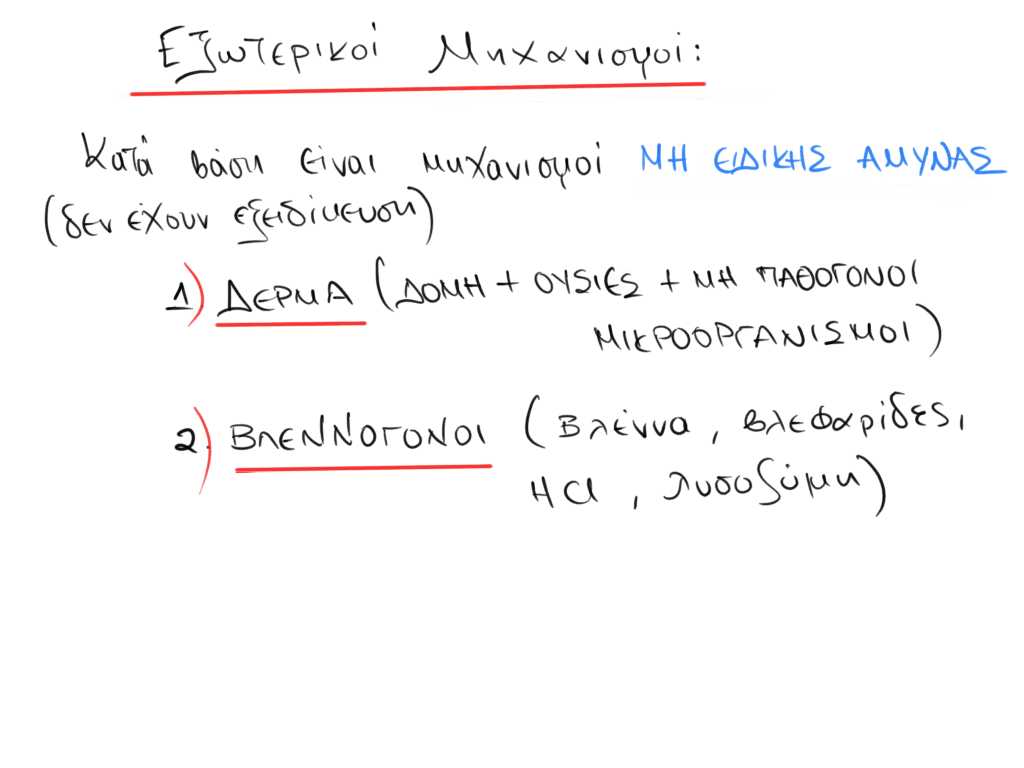 Εξωτερικοί Μηχανισμοί:
Κατά βάση είναι μηχανισμοί ΜΗ ΕΙΔΙΚΗΣ ΑΜΥΝΑΣ
(δεν έχουν εξειδίκευση)
1) ΔΕΡΜΑ (ΔΟΜΗ + ΟΥΣΙΕΣ + ΜΗ ΠΑΘΟΓΟΝΟΙ
ΜΙΚΡΟΟΡΓΑΝΙΣΜΟΙ)
2) ΒΛΕΝΝΟΓΟΝΟΙ (Βλέννα, βλεφαρίδες,
HCl, λυσοζύμη)